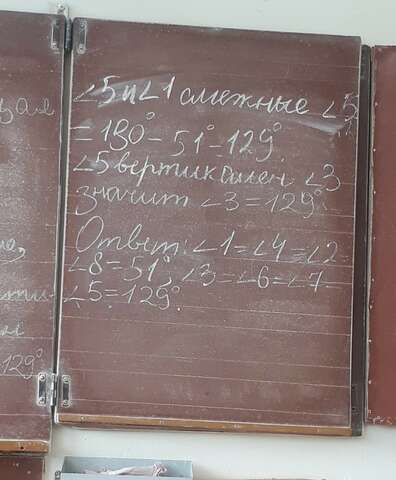 ∠5 и ∠1 смежные ∠5
= 180° - 51° = 129°
∠5 вертикален ∠3
значит ∠3 = 129°
Ответ: ∠1=∠4=∠2=
∠8=51°, ∠3=∠6=∠7=
∠5=129°
129°